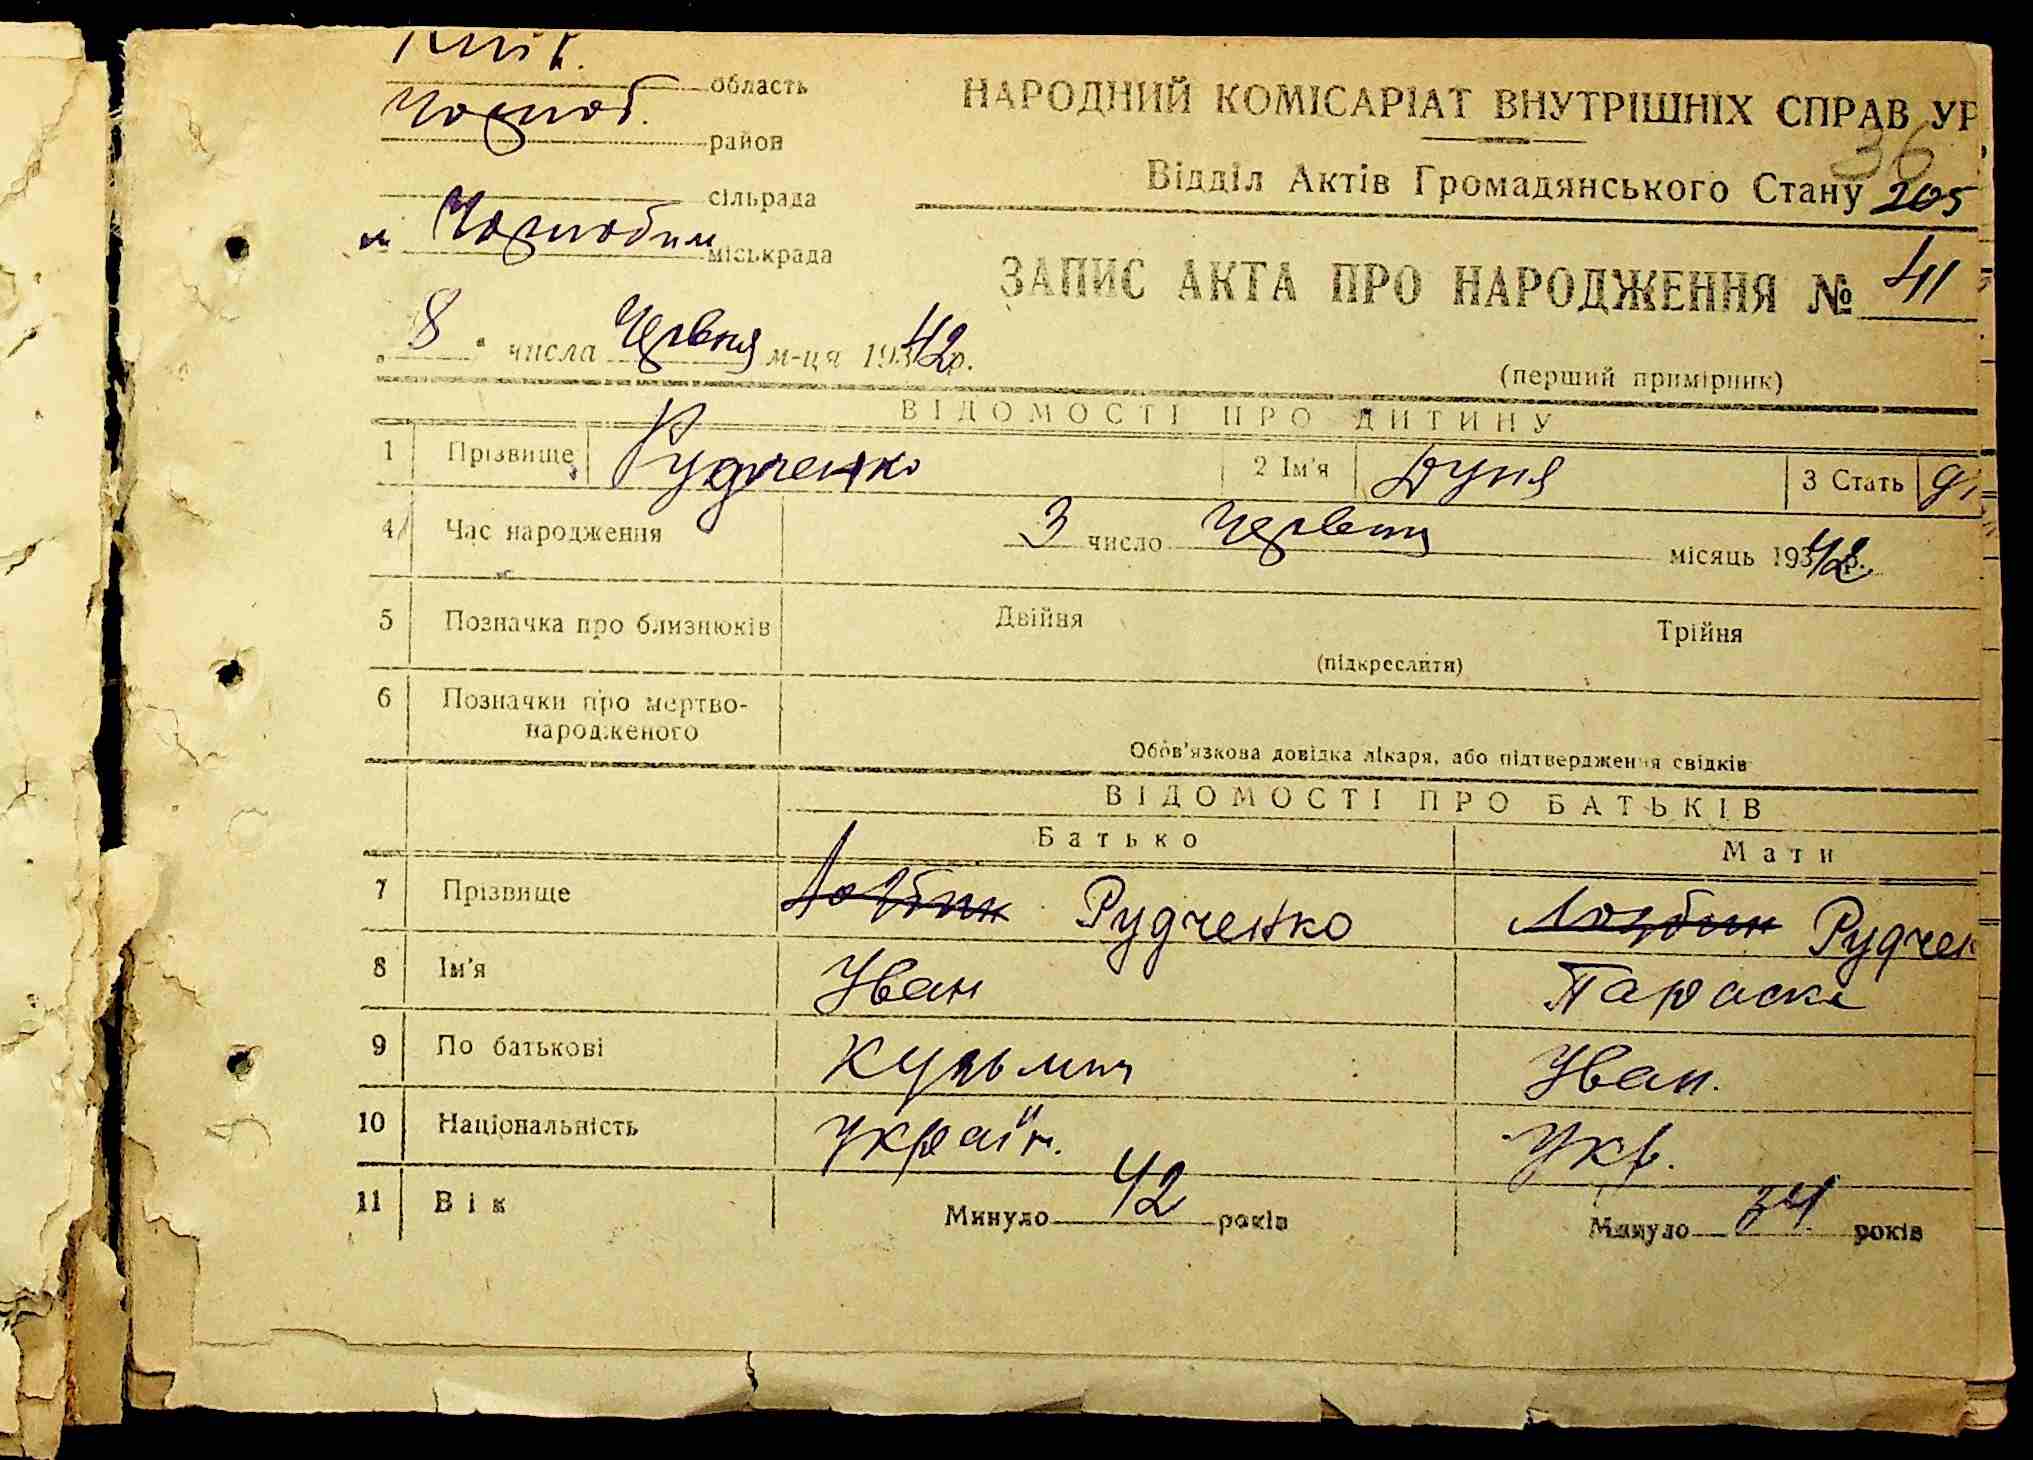 Київ. область
Чорноб. район
сільрада
м Чорнобиль міськрада
НАРОДНИЙ КОМІСАРІАТ ВНУТРІШНІХ СПРАВ УР
36
Відділ Актів Громадянського Стану 205
ЗАПИС АКТА ПРО НАРОДЖЕННЯ № 41
„ 8 " числа Червня м-ця 1942р.
(перший примірник)
ВІДОМОСТІ ПРО ДИТИНУ
1 Прізвище Рудченко 2 Ім'я Дуня 3 Стать ді
4 Час народження 3 число Червня місяць 19342р.
5 Позначка про близнюків Двійня Трійня
(підкреслити)
6 Позначки про мертво-
народженого
Обов'язкова довідка лікаря, або підтвердження свідків
ВІДОМОСТІ ПРО БАТЬКІВ
Батько Мати
7 Прізвище Рудченко Рудчен
8 Ім'я Іван Параска
9 По батькові Кузьмич Іван.
10 Національність Україн. Укр.
11 Вік Минуло 42 років Минуло 34 років